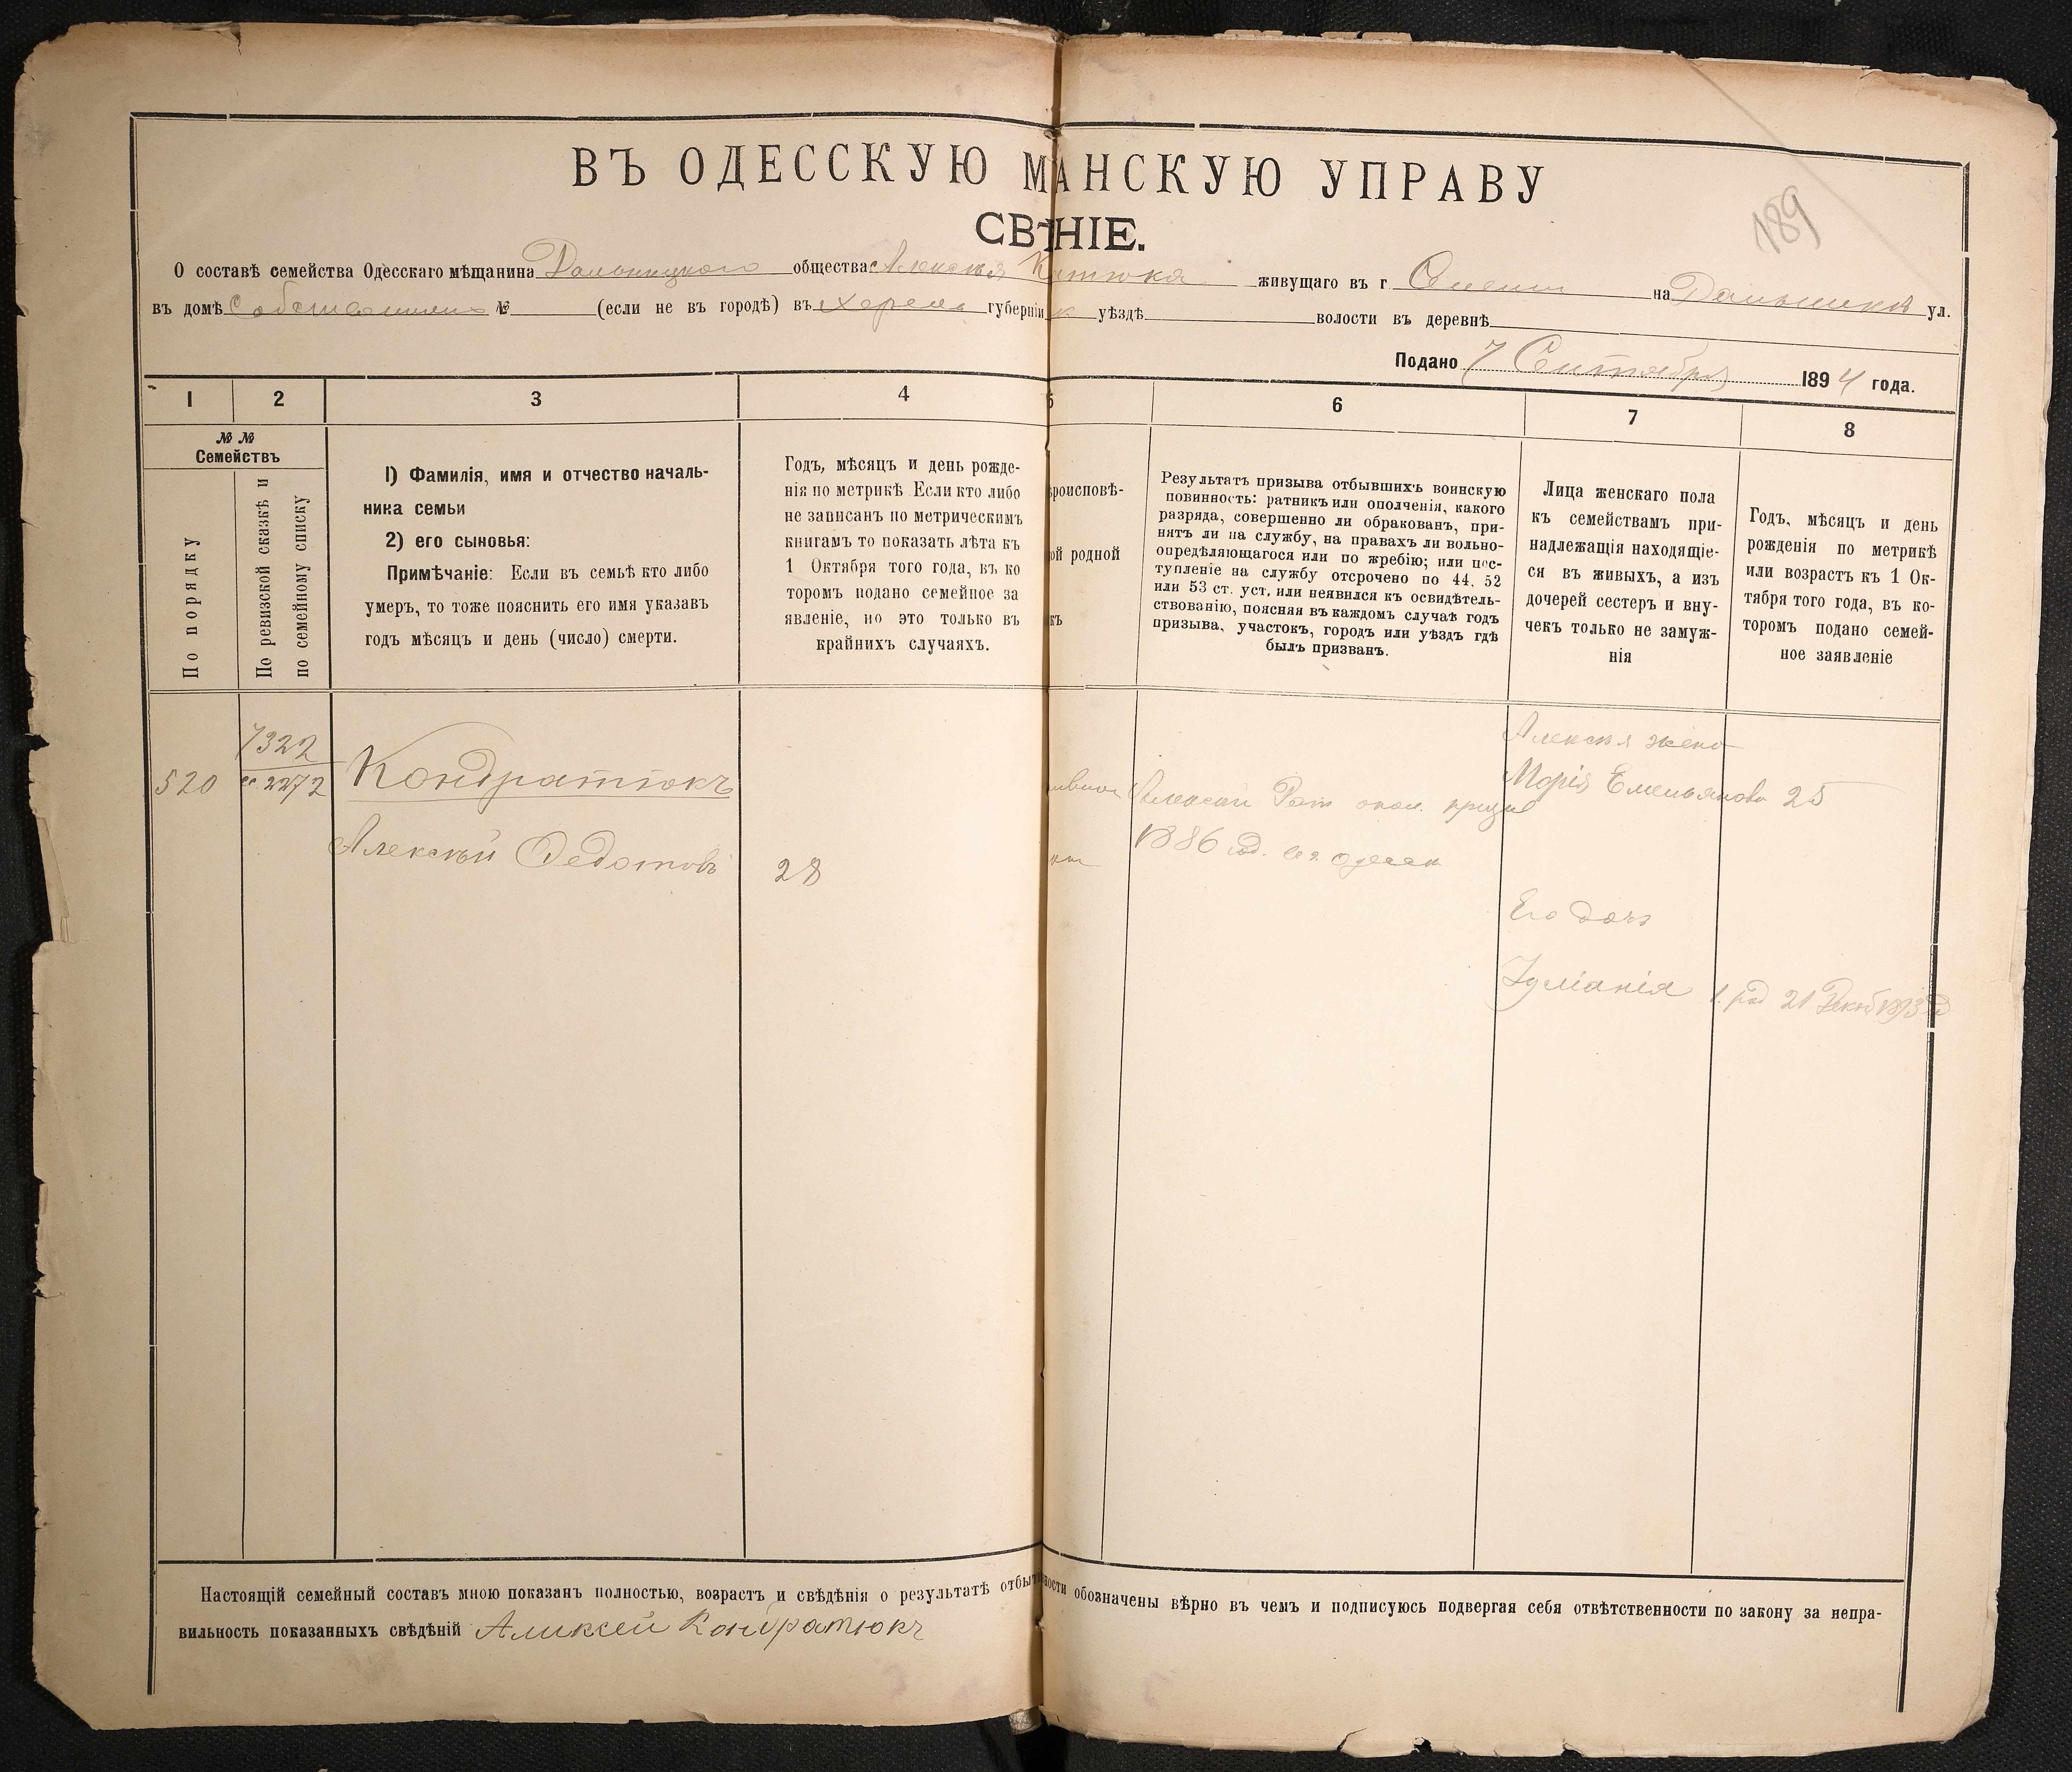 ВЪ ОДЕССКУЮ М АНСКУЮ УПРАВУ
СВѢ НІЕ.
189
О составѣ семейства Одесскаго мѣщанина Дальницкаго общества Алексѣя К тюка живущаго въ г на Дальницкой ул.
въ домѣ собственномъ № (если не въ городѣ) въ губерніи уѣздѣ волости въ деревнѣ
Подано 7 Сентября 1894 года.
1 2 3 4 5 6 7 8
№ № Семействъ
По порядку
По ревизской сказкѣ и по семейному списку
1) Фамилія, имя и отчество началь-
ника семьи
2) его сыновья:
Примѣчаніе: Если въ семьѣ кто либо
умеръ, то тоже пояснить его имя указавъ
годъ мѣсяцъ и день (число) смерти.
Годъ, мѣсяцъ и день рожде-
нія по метрикѣ Если кто либо
не записанъ по метрическимъ
книгамъ то показать лѣта къ
1 Октября того года, въ ко
торомъ подано семейное за
явленіе, но это только въ
крайнихъ случаяхъ.
ѣроисповѣ-
ой родной
къ
Результатъ призыва отбывшихъ воинскую
повинность: ратникъ или ополченія, какого
разряда, совершенно ли обракованъ, при-
нятъ ли на службу, на правахъ ли вольно-
опредѣляющагося или по жребію; или пос-
тупленіе на службу отсрочено по 44, 52
или 53 ст. уст. или неявился къ освидѣтель-
ствованію, поясняя въ каждомъ случаѣ годъ
призыва, участокъ, городъ или уѣздъ гдѣ
былъ призванъ.
Лица женскаго пола
къ семействамъ при-
надлежащія находящіе-
ся въ живыхъ, а изъ
дочерей сестеръ и вну-
чекъ только не замуж-
нія
Годъ, мѣсяцъ и день
рожденія по метрикѣ
или возрастъ къ 1 Ок-
тября того года, въ ко-
торомъ подано семей-
ное заявленіе
520
7322
2272
Кондратюкъ
Алексѣй Федотовъ 28
Алексѣй Рат опол. призыв
1886 год. въ г. Одесск
Алексѣя жена
Марія Емельянова 25
Его дочь
Іуліанія 1. род 21 Декаб 1893 г
Настоящій семейный составъ мною показанъ полностью, возрастъ и свѣдѣнія о результатѣ отбыт ности обозначены вѣрно въ чемъ и подписуюсь подвергая себя отвѣтственности по закону за непра-
вильность показанныхъ свѣдѣній Аликсей Кондратюкъ